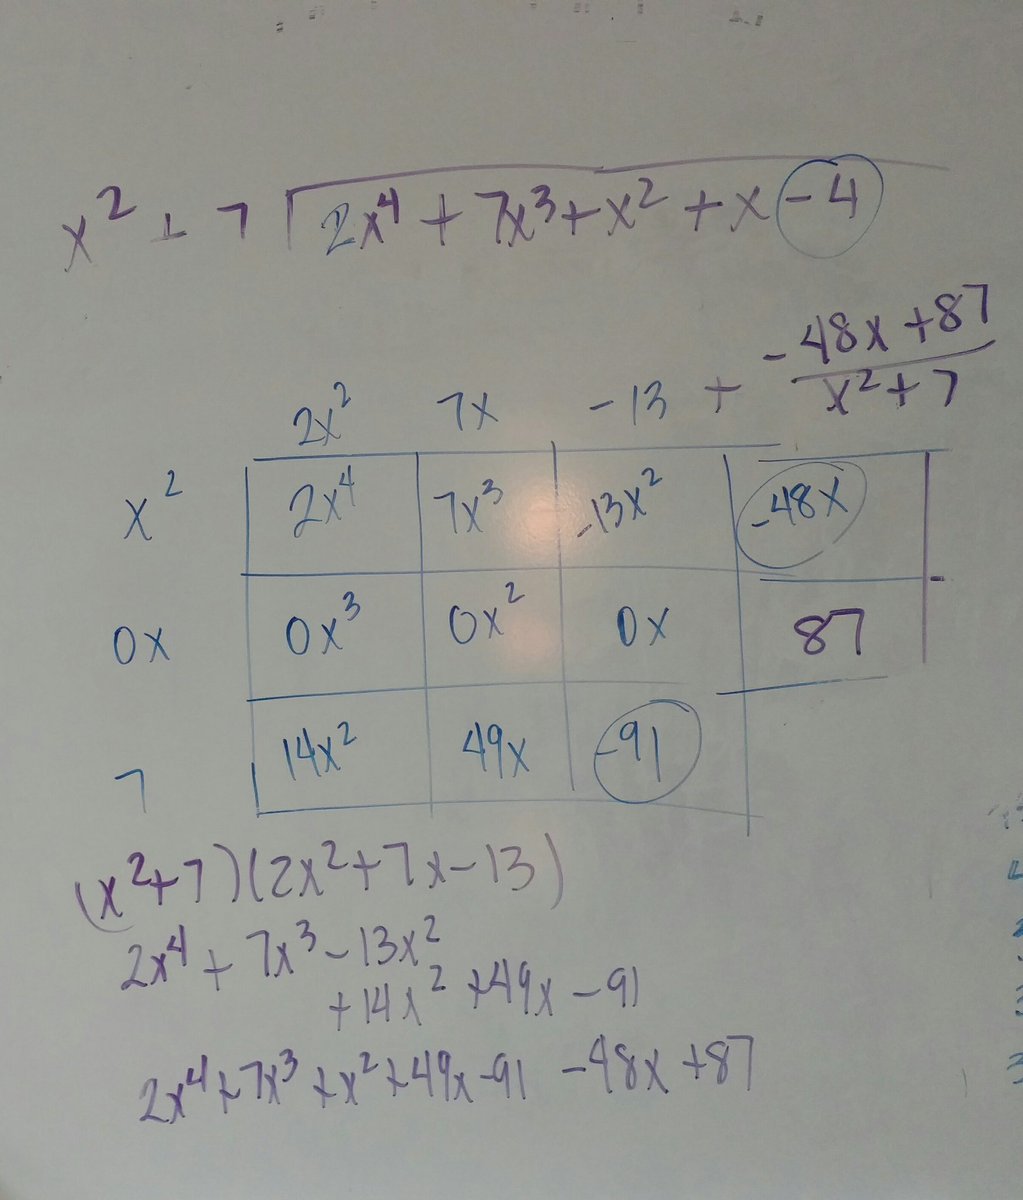 x² + 7 2x⁴ + 7x³ + x² + x - 4
-48x + 87
2x² 7x - 13 + x² + 7
x² 2x⁴ 7x³ -13x² -48x
0x 0x³ 0x² 0x 87
7 14x² 49x -91
(x² + 7)(2x² + 7x - 13)
2x⁴ + 7x³ - 13x²
+ 14x² + 49x - 91
2x⁴ + 7x³ + x² + 49x - 91 - 48x + 87